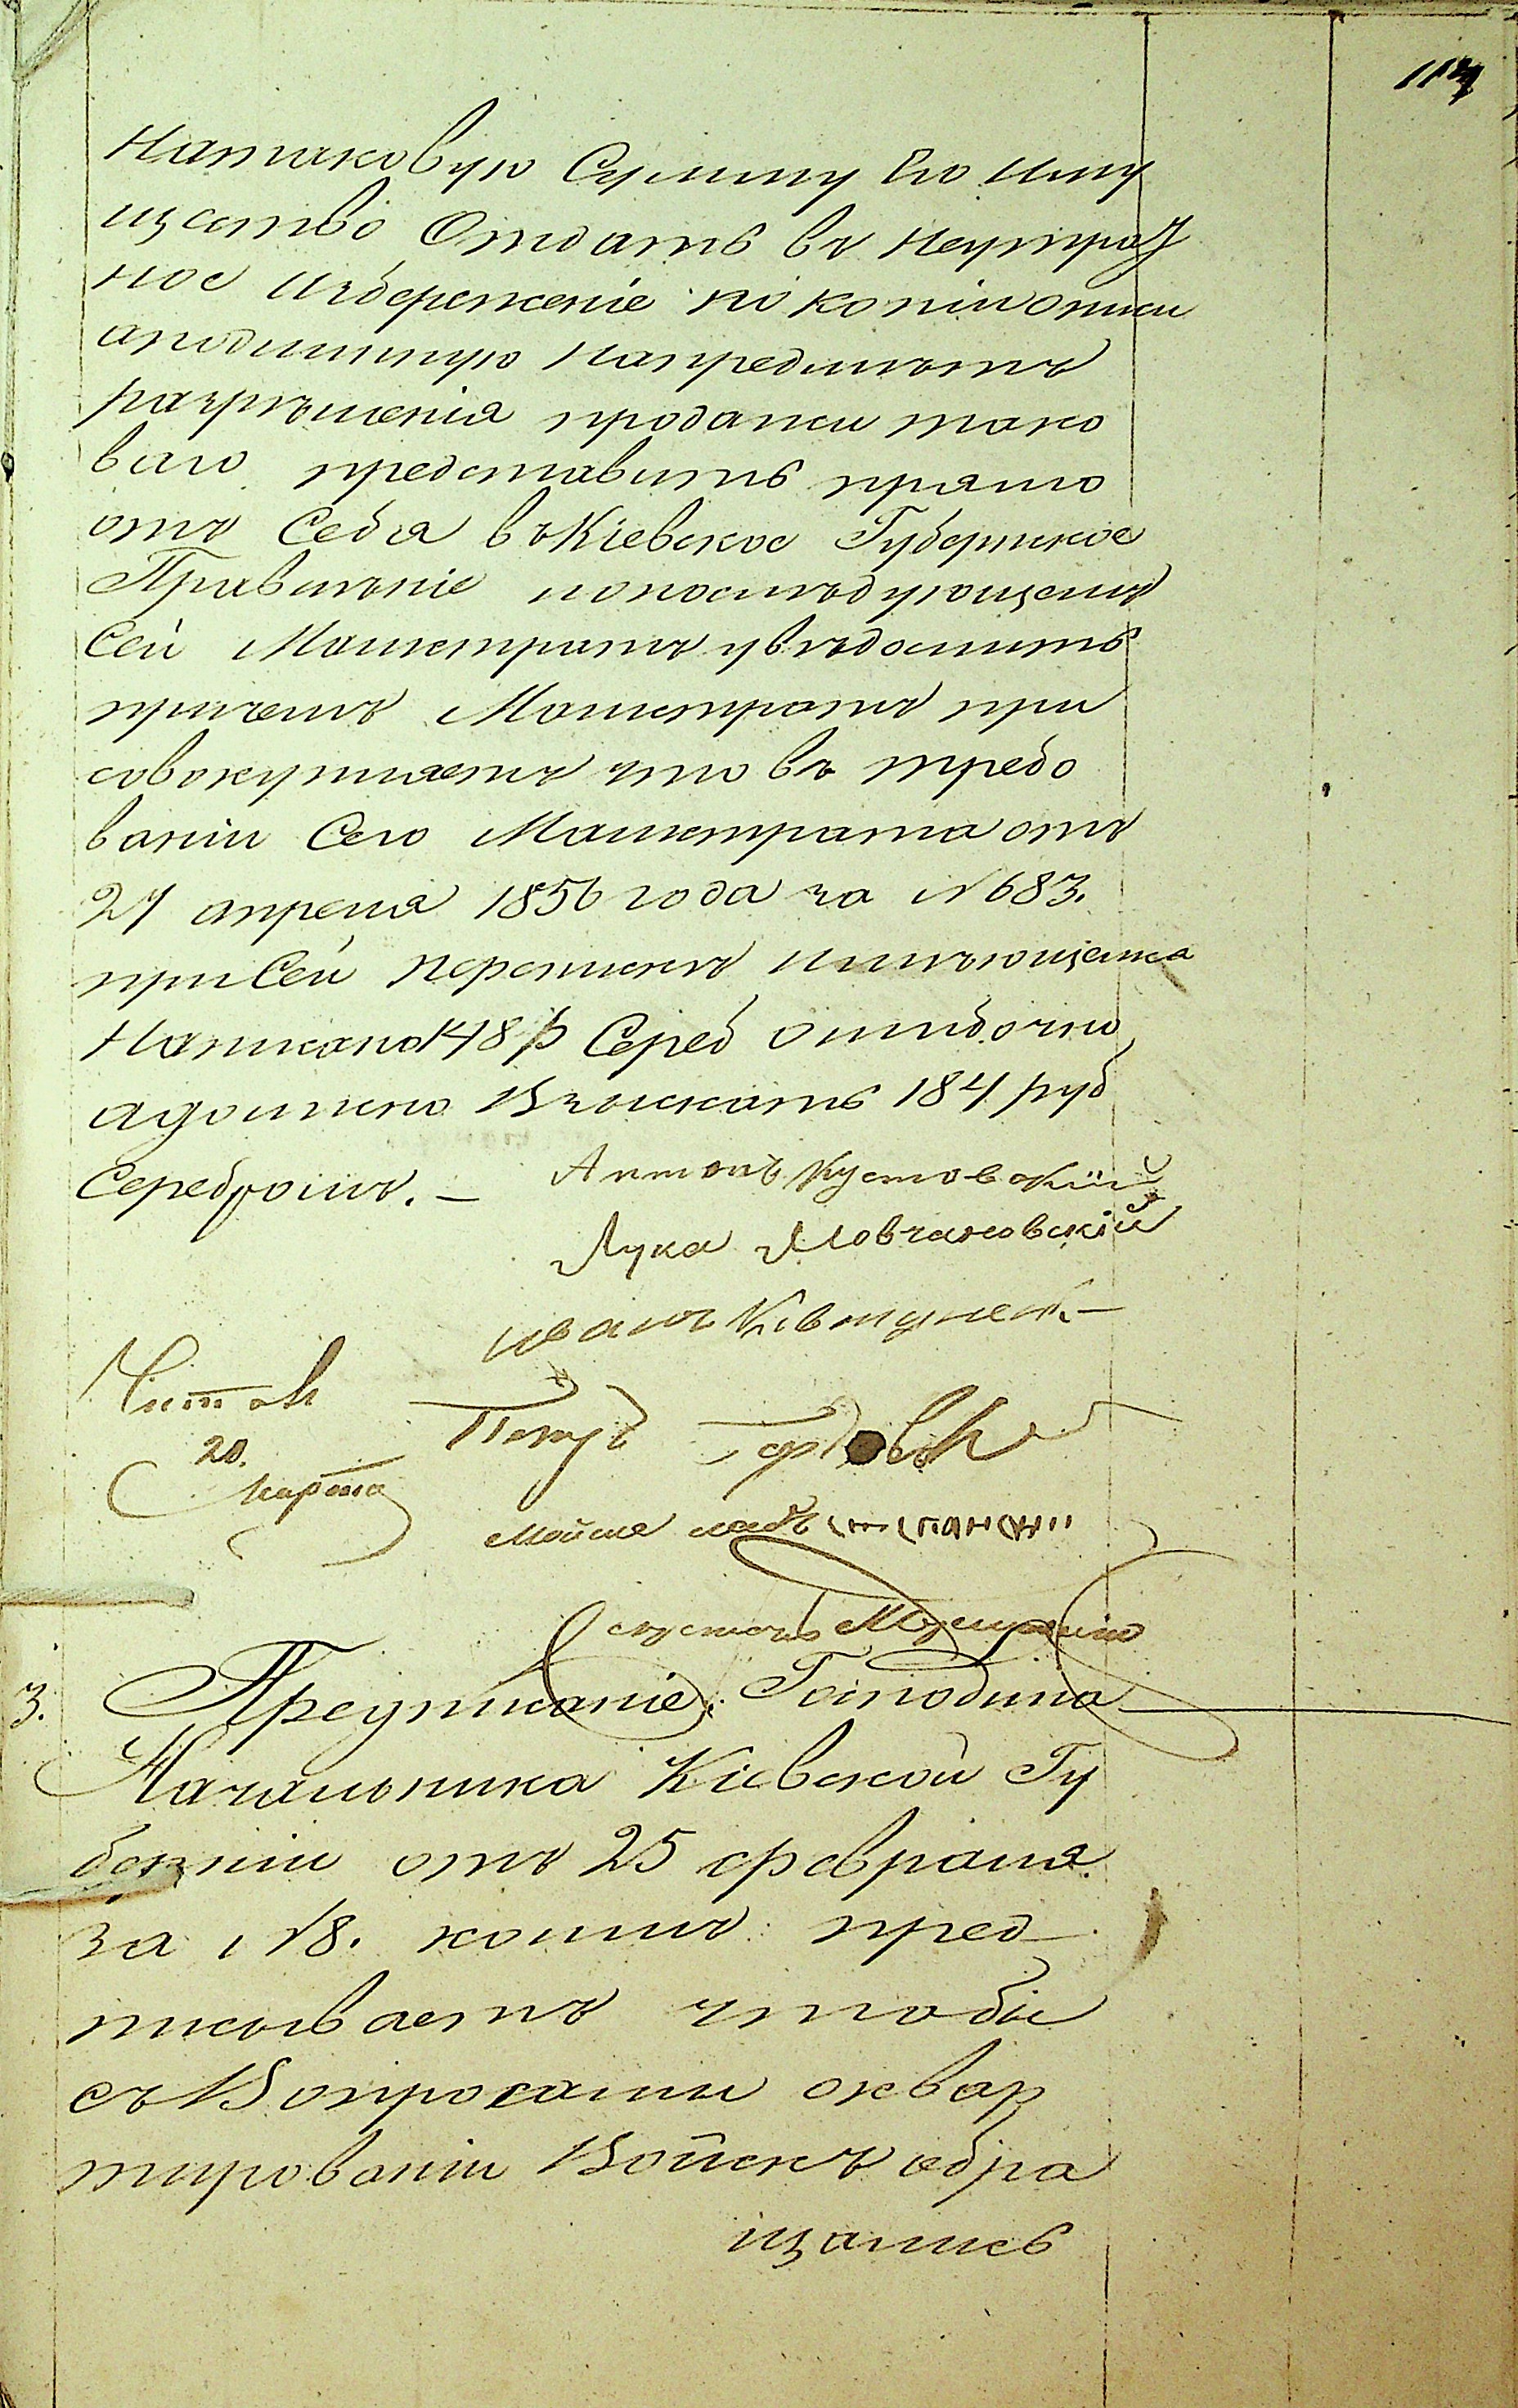 113
Натаковую Сумму Его Иму
щество Отдать въ Неутрат
ное избереженіе по копіи описи
аподлинную Напредметъ
разрѣшенія продажи тако
ваго представить прямо
отъ Себя въ Кіевское Губернское
Правленіе ипопослѣдующемъ
Сей Магистратъ увѣдомить
причемъ Магистратъ при
совокупляетъ что въ требо
ваніи Сего Магистрата отъ
27 апреля 1856 года за №683.
приСей перепискѣ имѣющемся
Написано 148 р Сереб ошибочно
адолжно Взыскать 184 руб
Серебромъ. —
Антонъ Кустовскій
Лука Мовчановскій
иванъ
Читалъ
20.
Марта
Петръ
3. Предписаніе Господина
Начальника Кіевской Гу
берніи отъ 25 февраля
за №8. коимъ пред
писываетъ чтобы
съ Вопросами оквар
тированіи Войскъ обра
щались